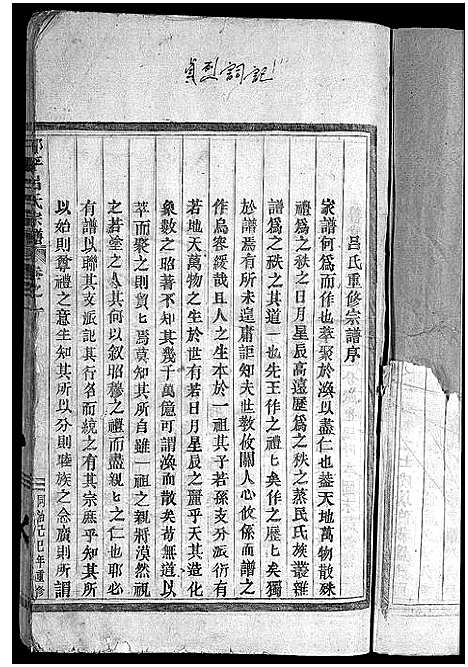 貞烈詞記
呂氏重修宗譜序
家譜何爲而作也萃聚於渙以盡仁也蓋天地萬物散殊
禮爲之秩之日月星辰高遠歷爲之秩之蒸民氏族叢雜
譜爲之秩之其道一也先王作之禮匕矣作之歷匕矣獨
於譜焉有所未遑庸詎知夫世敎攸關人心攸係而譜之
作烏容緩哉且人之生本於一祖其子若孫支分派衍有
若地天萬物之生於世有若日月星辰之麗乎天其造化
象數之昭著不知其幾千萬億可謂渙而散矣苟無道以
萃而聚之則貿匕焉莫知其所自雖一祖之親將漠然視
之若塗之人其何以叙昭穆之禮而盡親匕之仁也耶必
有譜以聯其支派記其行名而統之有其宗庶乎知其所
以始則尊禮之意生知其所以分則睦族之念廣則所謂
呂氏宗譜
卷之一
同治己巳年重修